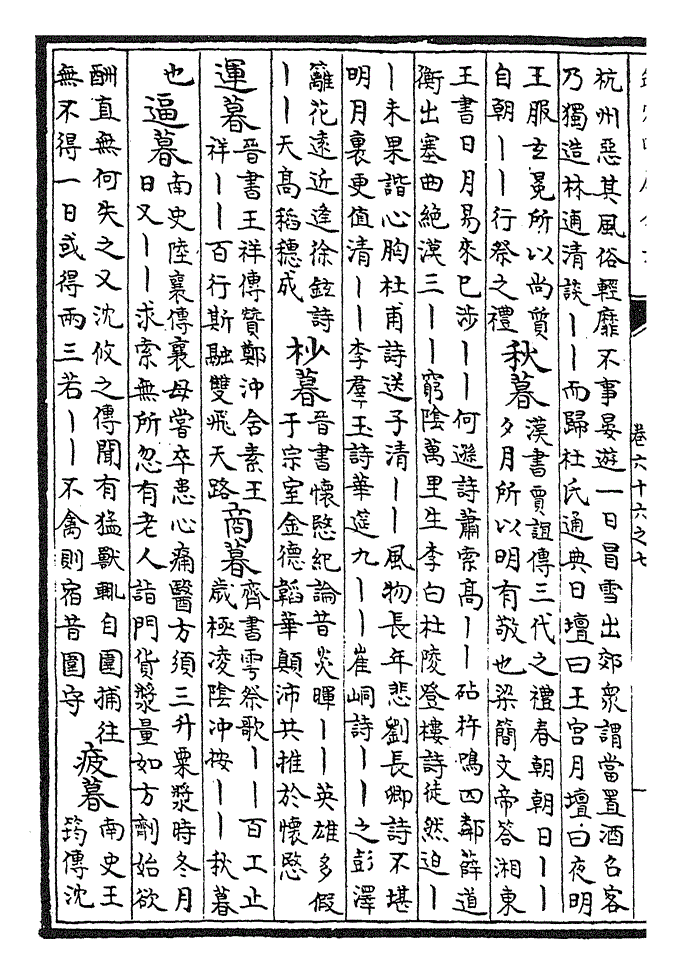 卷六十六之七
杭州惡其風俗輕靡不事宴遊一日冒雪出郊衆謂當置酒召客
乃獨造林逋清談丨丨而歸杜氏通典日壇曰王宮月壇曰夜明
王服玄冕所以尚質
自朝丨丨行祭之禮
秋暮
漢書賈誼傳三代之禮春朝朝日丨丨
夕月所以明有敬也梁簡文帝答湘東
王書日月易來已涉丨丨何遜詩蕭索高丨丨砧杵鳴四鄰薛道
衡出塞曲絶漠三丨丨窮陰萬里生李白杜陵登樓詩徒然迫丨
丨未果諧心胸杜甫詩送子清丨丨風物長年悲劉長卿詩不堪
明月裏更值清丨丨李羣玉詩華筵九丨丨崔峒詩丨丨之彭澤
籬花遠近逢徐鉉詩
丨丨天高稻穗成
杪暮
晉書懷愍紀論昔炎暉丨丨英雄多假
于宗室金德韜華顛沛共推於懷愍
運暮
晉書王祥傳贊鄭沖含素王
祥丨丨百行斯融雙飛天路
商暮
齊書雩祭歌丨丨百工止
歲極凌陰沖按丨丨秋暮
也
逼暮
南史陸襄傳襄母嘗卒患心痛醫方須三升粟漿時冬月
日又丨丨求索無所忽有老人詣門貨漿量如方劑始欲
酬直無何失之又沈攸之傳聞有猛獸輒自圍捕往
無不得一日或得兩三若丨丨不禽則宿昔圍守
疲暮
南史王
筠傳沈